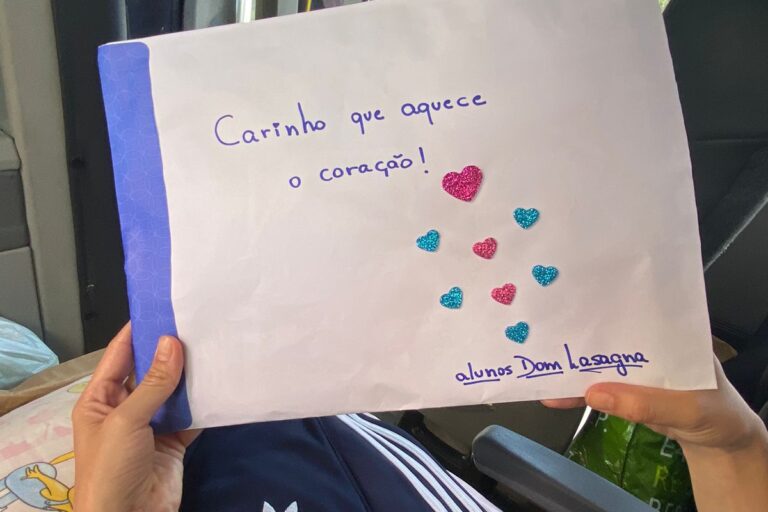 Carinho que aquece
o coração!
alunos Dom Lasagna